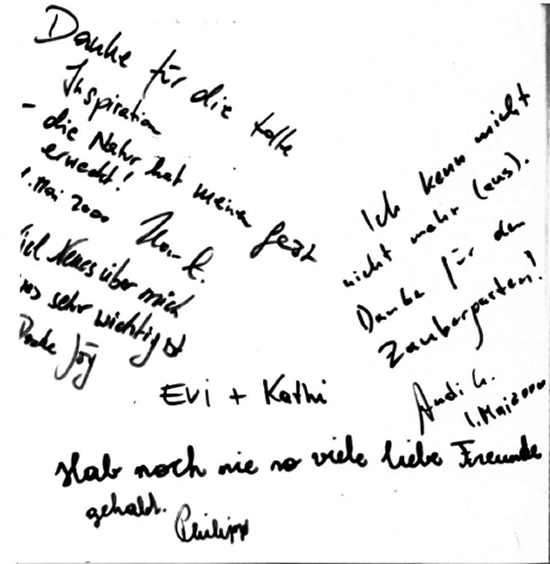 Danke für die tolle
Inspiration
- die Natur hat meinen Geist
erweckt!
1. Mai 2000
viel Neues über mich
sehr wichtig ist
Danke
Evi + Kathi
Ich kenn mich
nicht mehr (aus).
Danke für den
Zaubergarten!
Andi G.
1. Mai 2000
Hab noch nie so viele liebe Freunde
gehabt.
Philipp